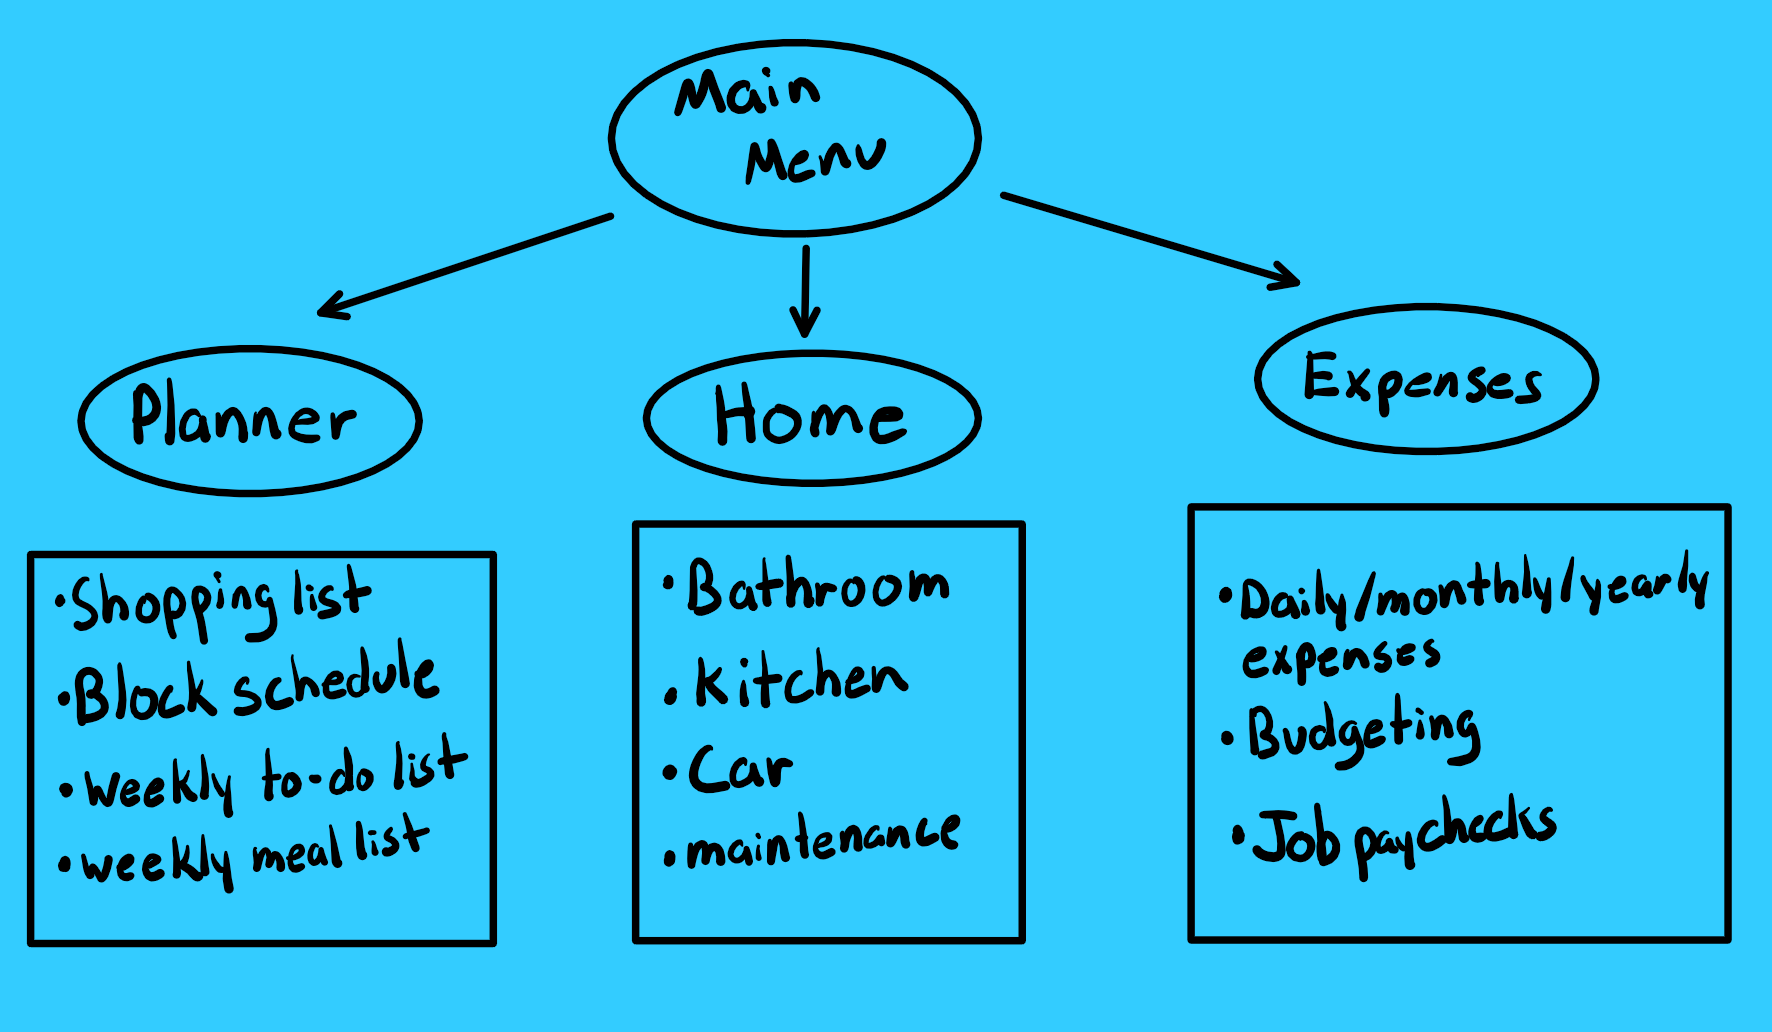 Main
Menu
Planner
Home
Expenses
•Shopping list
•Block schedule
•weekly to-do list
•weekly meal list
•Bathroom
•Kitchen
•Car
•maintenance
•Daily/monthly/yearly
expenses
•Budgeting
•Job paychecks